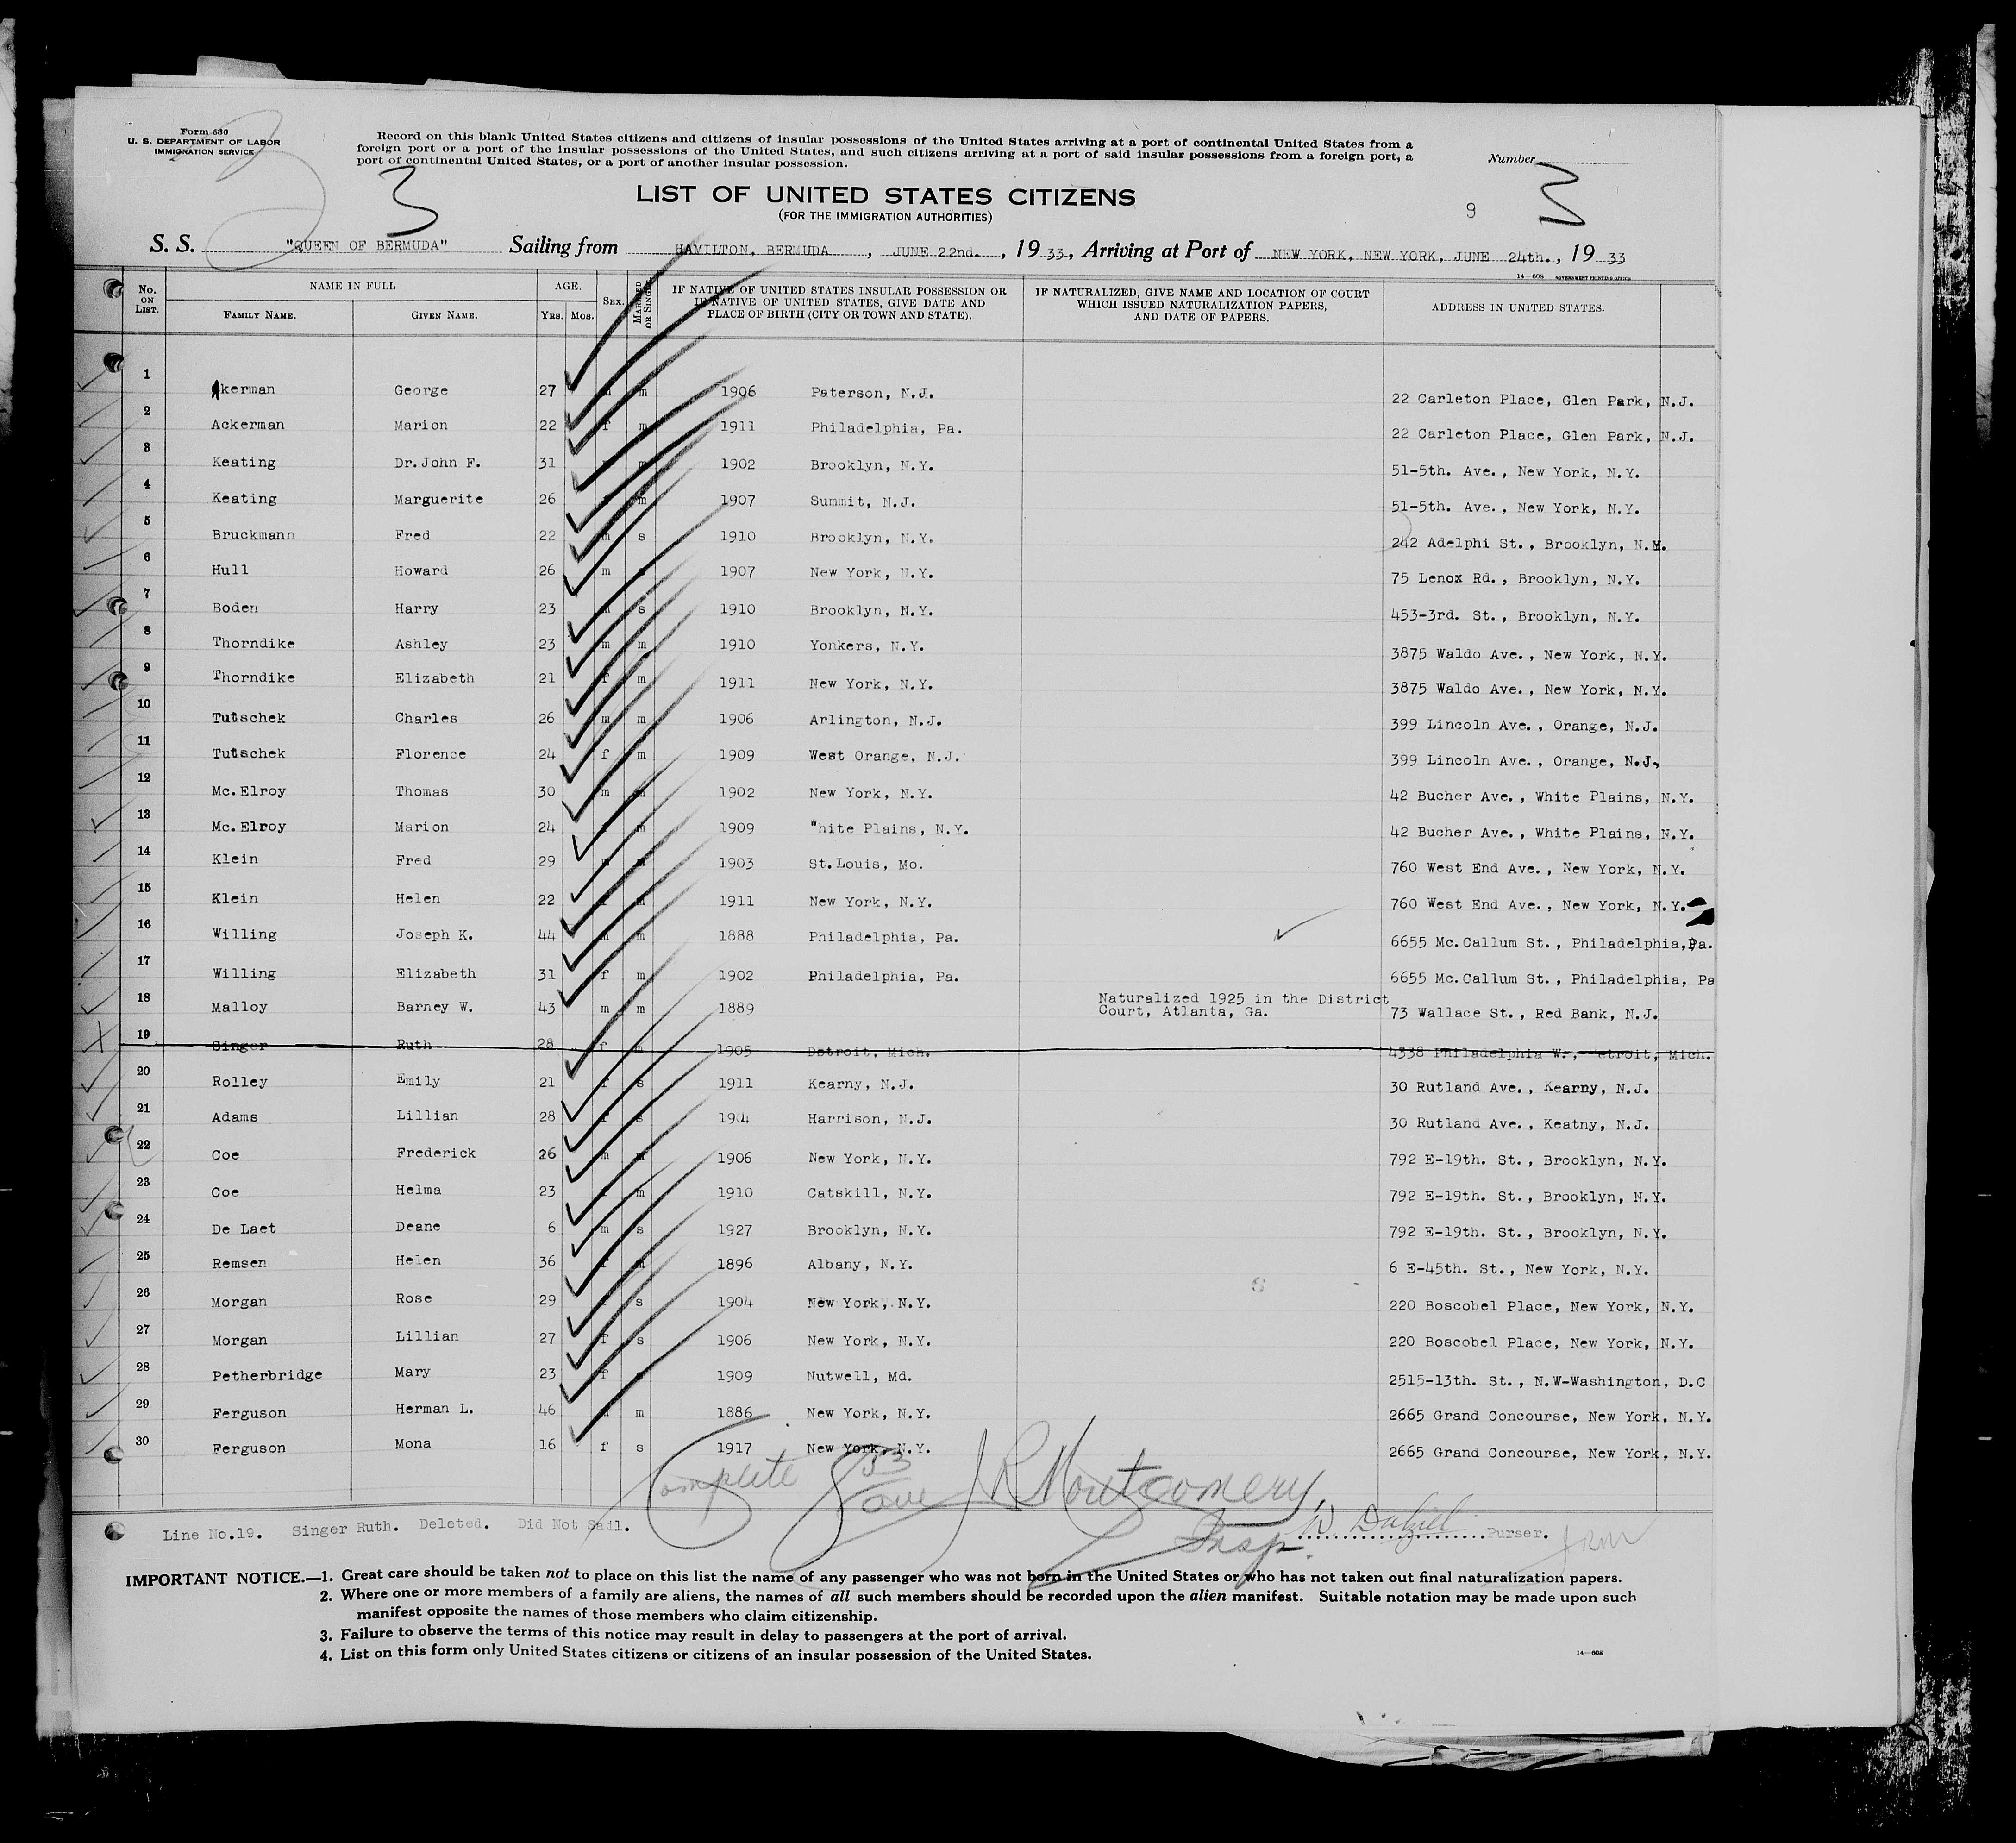 Form 630
U. S. DEPARTMENT OF LABOR
IMMIGRATION SERVICE
Record on this blank United States citizens and citizens of insular possessions of the United States arriving at a port of continental United States from a
foreign port or a port of the insular possessions of the United States, and such citizens arriving at a port of said insular possessions from a foreign port, a
port of continental United States, or a port of another insular possession.
Number
3
3
LIST OF UNITED STATES CITIZENS
(FOR THE IMMIGRATION AUTHORITIES)
9
S. S. "QUEEN OF BERMUDA" Sailing from HAMILTON, BERMUDA, JUNE 22nd., 1933, Arriving at Port of NEW YORK, NEW YORK, JUNE 24th., 1933
14—608 GOVERNMENT PRINTING OFFICE
No. ON LIST. NAME IN FULL FAMILY NAME. GIVEN NAME. AGE. YRS. MOS. SEX. MARRIED OR SINGLE
IF NATIVE OF UNITED STATES INSULAR POSSESSION OR IF NATIVE OF UNITED STATES, GIVE DATE AND PLACE OF BIRTH (CITY OR TOWN AND STATE).
IF NATURALIZED, GIVE NAME AND LOCATION OF COURT WHICH ISSUED NATURALIZATION PAPERS, AND DATE OF PAPERS.
ADDRESS IN UNITED STATES.
1 Akerman George 27 m 1906 Paterson, N.J. 22 Carleton Place, Glen Park, N.J.
2 Ackerman Marion 22 f m 1911 Philadelphia, Pa. 22 Carleton Place, Glen Park, N.J.
3 Keating Dr. John F. 31 m 1902 Brooklyn, N.Y. 51-5th. Ave., New York, N.Y.
4 Keating Marguerite 26 m 1907 Summit, N.J. 51-5th. Ave., New York, N.Y.
5 Bruckmann Fred 22 m s 1910 Brooklyn, N.Y. 242 Adelphi St., Brooklyn, N.Y.
6 Hull Howard 26 m 1907 New York, N.Y. 75 Lenox Rd., Brooklyn, N.Y.
7 Boden Harry 23 s 1910 Brooklyn, N.Y. 453-3rd. St., Brooklyn, N.Y.
8 Thorndike Ashley 23 m m 1910 Yonkers, N.Y. 3875 Waldo Ave., New York, N.Y.
9 Thorndike Elizabeth 21 f m 1911 New York, N.Y. 3875 Waldo Ave., New York, N.Y.
10 Tutschek Charles 26 m m 1906 Arlington, N.J. 399 Lincoln Ave., Orange, N.J.
11 Tutschek Florence 24 f m 1909 West Orange, N.J. 399 Lincoln Ave., Orange, N.J.
12 Mc.Elroy Thomas 30 m m 1902 New York, N.Y. 42 Bucher Ave., White Plains, N.Y.
13 Mc.Elroy Marion 24 f m 1909 White Plains, N.Y. 42 Bucher Ave., White Plains, N.Y.
14 Klein Fred 29 1903 St.Louis, Mo. 760 West End Ave., New York, N.Y.
15 Klein Helen 22 1911 New York, N.Y. 760 West End Ave., New York, N.Y.
16 Willing Joseph K. 44 m 1888 Philadelphia, Pa. 6655 Mc.Callum St., Philadelphia, Pa.
17 Willing Elizabeth 31 f m 1902 Philadelphia, Pa. 6655 Mc.Callum St., Philadelphia, Pa
18 Malloy Barney W. 43 m m 1889 Naturalized 1925 in the District Court, Atlanta, Ga. 73 Wallace St., Red Bank, N.J.
19 Singer Ruth 28 f m 1905 Detroit, Mich. 4338 Philadelphia W., etroit, Mich.
20 Rolley Emily 21 f s 1911 Kearny, N.J. 30 Rutland Ave., Kearny, N.J.
21 Adams Lillian 28 f s 1904 Harrison, N.J. 30 Rutland Ave., Keatny, N.J.
22 Coe Frederick 26 m 1906 New York, N.Y. 792 E-19th. St., Brooklyn, N.Y.
23 Coe Helma 23 m 1910 Catskill, N.Y. 792 E-19th. St., Brooklyn, N.Y.
24 De Laet Deane 6 m s 1927 Brooklyn, N.Y. 792 E-19th. St., Brooklyn, N.Y.
25 Remsen Helen 36 1896 Albany, N.Y. 6 E-45th. St., New York, N.Y.
26 Morgan Rose 29 s 1904 New York, N.Y. 220 Boscobel Place, New York, N.Y.
27 Morgan Lillian 27 f s 1906 New York, N.Y. 220 Boscobel Place, New York, N.Y.
28 Petherbridge Mary 23 f 1909 Nutwell, Md. 2515-13th. St., N.W-Washington, D.C
29 Ferguson Herman L. 46 m 1886 New York, N.Y. 2665 Grand Concourse, New York, N.Y.
30 Ferguson Mona 16 f s 1917 New York, N.Y. 2665 Grand Concourse, New York, N.Y.
Complete J R Montgomery
Insp.
Line No.19. Singer Ruth. Deleted. Did Not Sail.
Purser.
IMPORTANT NOTICE.—1. Great care should be taken not to place on this list the name of any passenger who was not born in the United States or who has not taken out final naturalization papers.
2. Where one or more members of a family are aliens, the names of all such members should be recorded upon the alien manifest. Suitable notation may be made upon such
manifest opposite the names of those members who claim citizenship.
3. Failure to observe the terms of this notice may result in delay to passengers at the port of arrival.
4. List on this form only United States citizens or citizens of an insular possession of the United States.
14—608